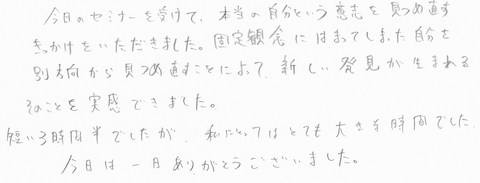 今日のセミナーを受けて、本当の自分という意志を見つめ直す
きっかけをいただきました。固定観念にはまってしまった自分を
別方向から見つめ直すことによって、新しい発見が生まれる
そのことを実感できました。
短い3時間半でしたが、私にとってはとても大きな時間でした。
今日は一日ありがとうございました。